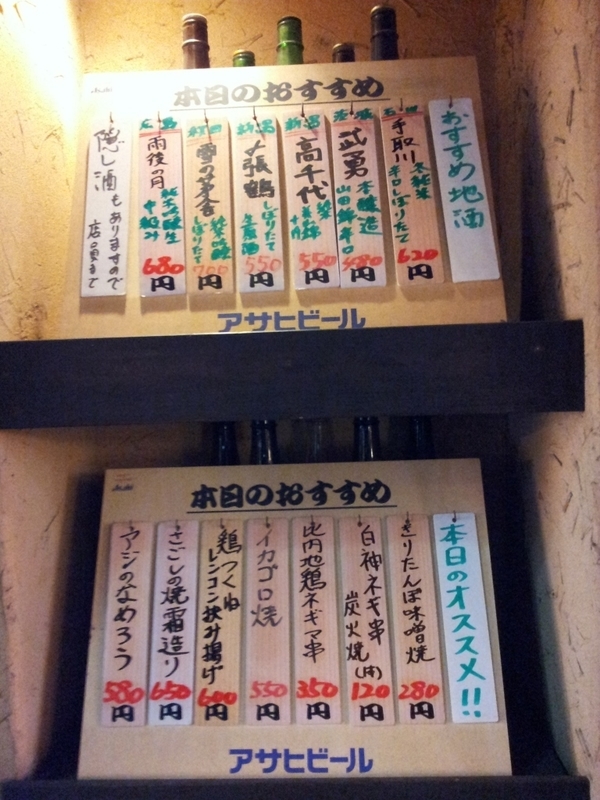 Asahi
本日のおすすめ
おすすめ地酒
石川
手取川
冬純米
辛口しぼりたて
620円
茨城
武勇
本醸造
山田錦辛口
480円
新潟
高千代
550円
新潟
〆張鶴
しぼりたて
生原酒
550円
秋田
しぼりたて
700円
広島
雨後の月
純米吟醸生
680円
隠し酒もありますので
店員まで
アサヒビール
Asahi
本日のおすすめ
本日のオススメ!!
きりたんぽ味噌焼
280円
白神ネギ串
炭火焼(1本)
120円
比内地鶏ネギマ串
350円
イカゴロ焼
550円
鶏つくね
レンコン挟み揚げ
600円
さごしの焼霜造り
650円
アジのなめろう
580円
アサヒビール